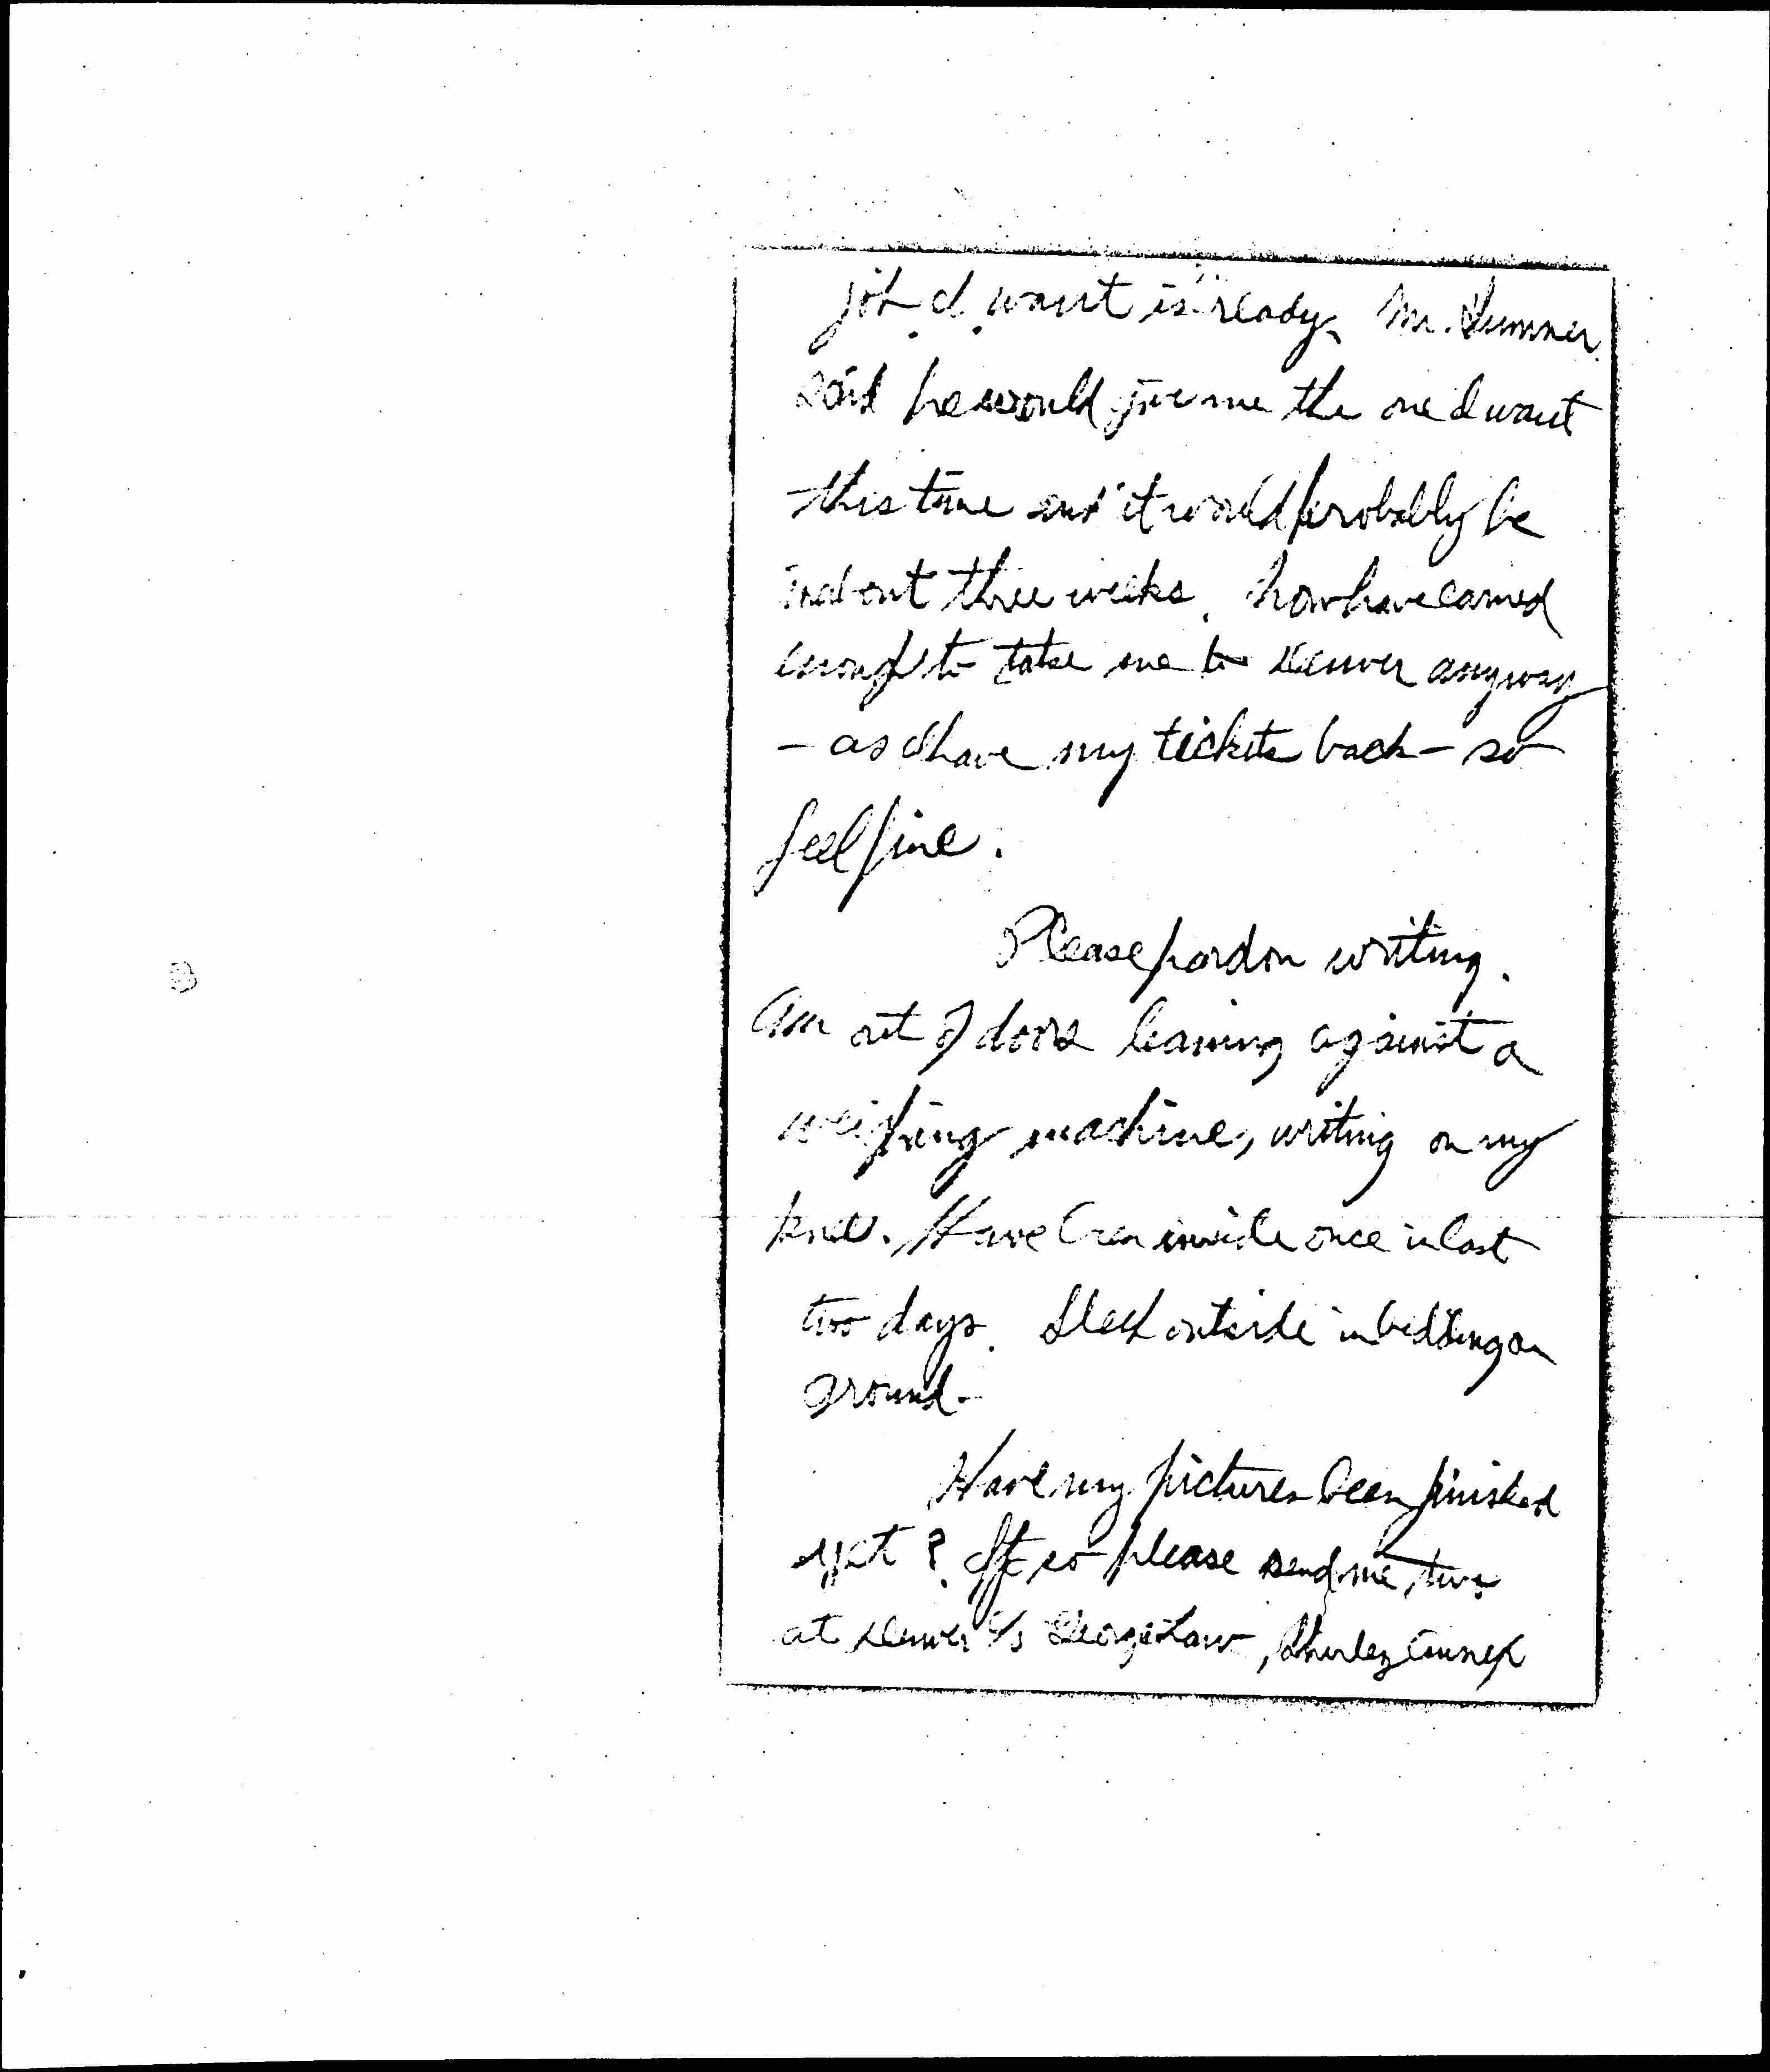 job I want is ready. Mr. Sumner
said he would give me the one I want
this time and it would probably be
in about three weeks. Now have earned
enough to take me to Denver anyway
- as I have my tickets back - so
feel fine.
Please pardon writing.
Am out of doors leaning against a
weighing machine, writing on my
knee. Have been inside once in last
two days. Sleep outside in bedding on
ground.
Have my pictures been finished
yet? If so please send me two
at Denver c/o George Law, Shirley Annex